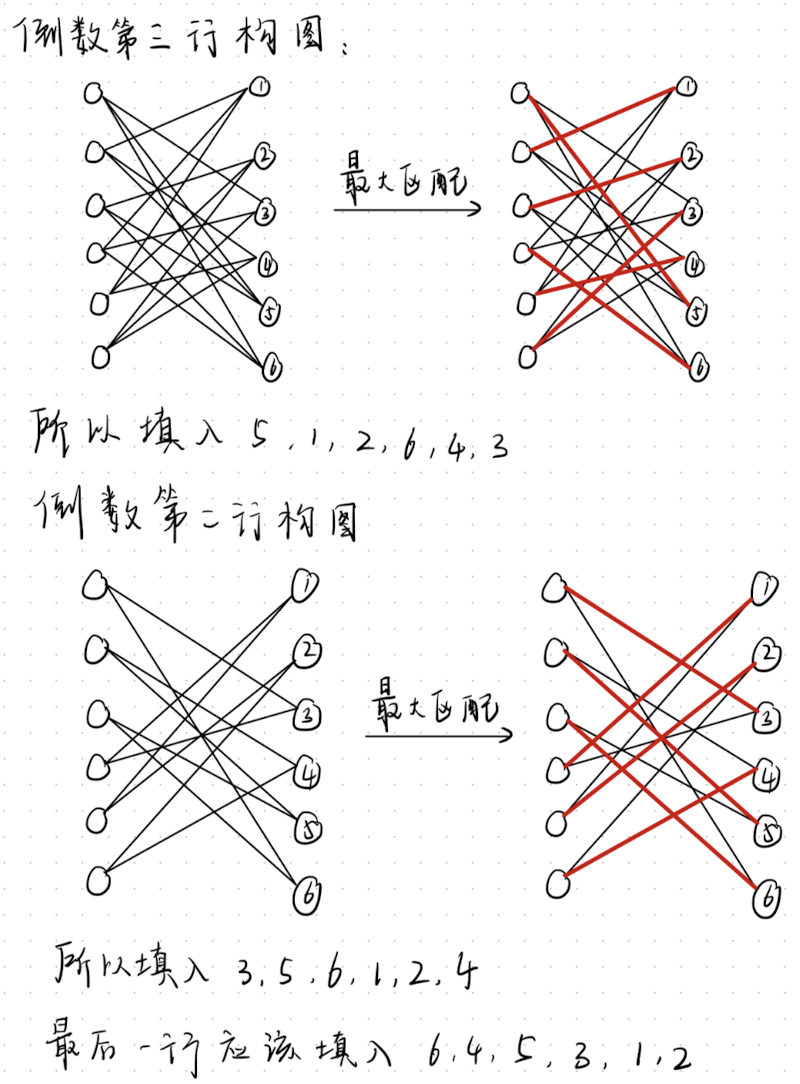 倒数第三行构图：
1
2
3
4
5
6
最大匹配
1
2
3
4
5
6
所以填入 5，1，2，6，4，3
倒数第二行构图
1
2
3
4
5
6
最大匹配
1
2
3
4
5
6
所以填入 3，5，6，1，2，4
最后一行应该填入 6，4，5，3，1，2